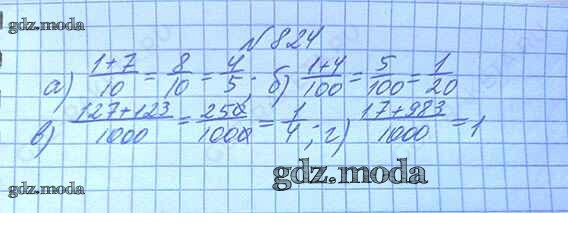 gdz.moda
№ 824
а) (1+7)/10 = 8/10 = 4/5; б) (1+4)/100 = 5/100 = 1/20
в) (127+123)/1000 = 250/1000 = 1/4; г) (17+983)/1000 = 1
gdz.moda
gdz.moda
gdz.moda